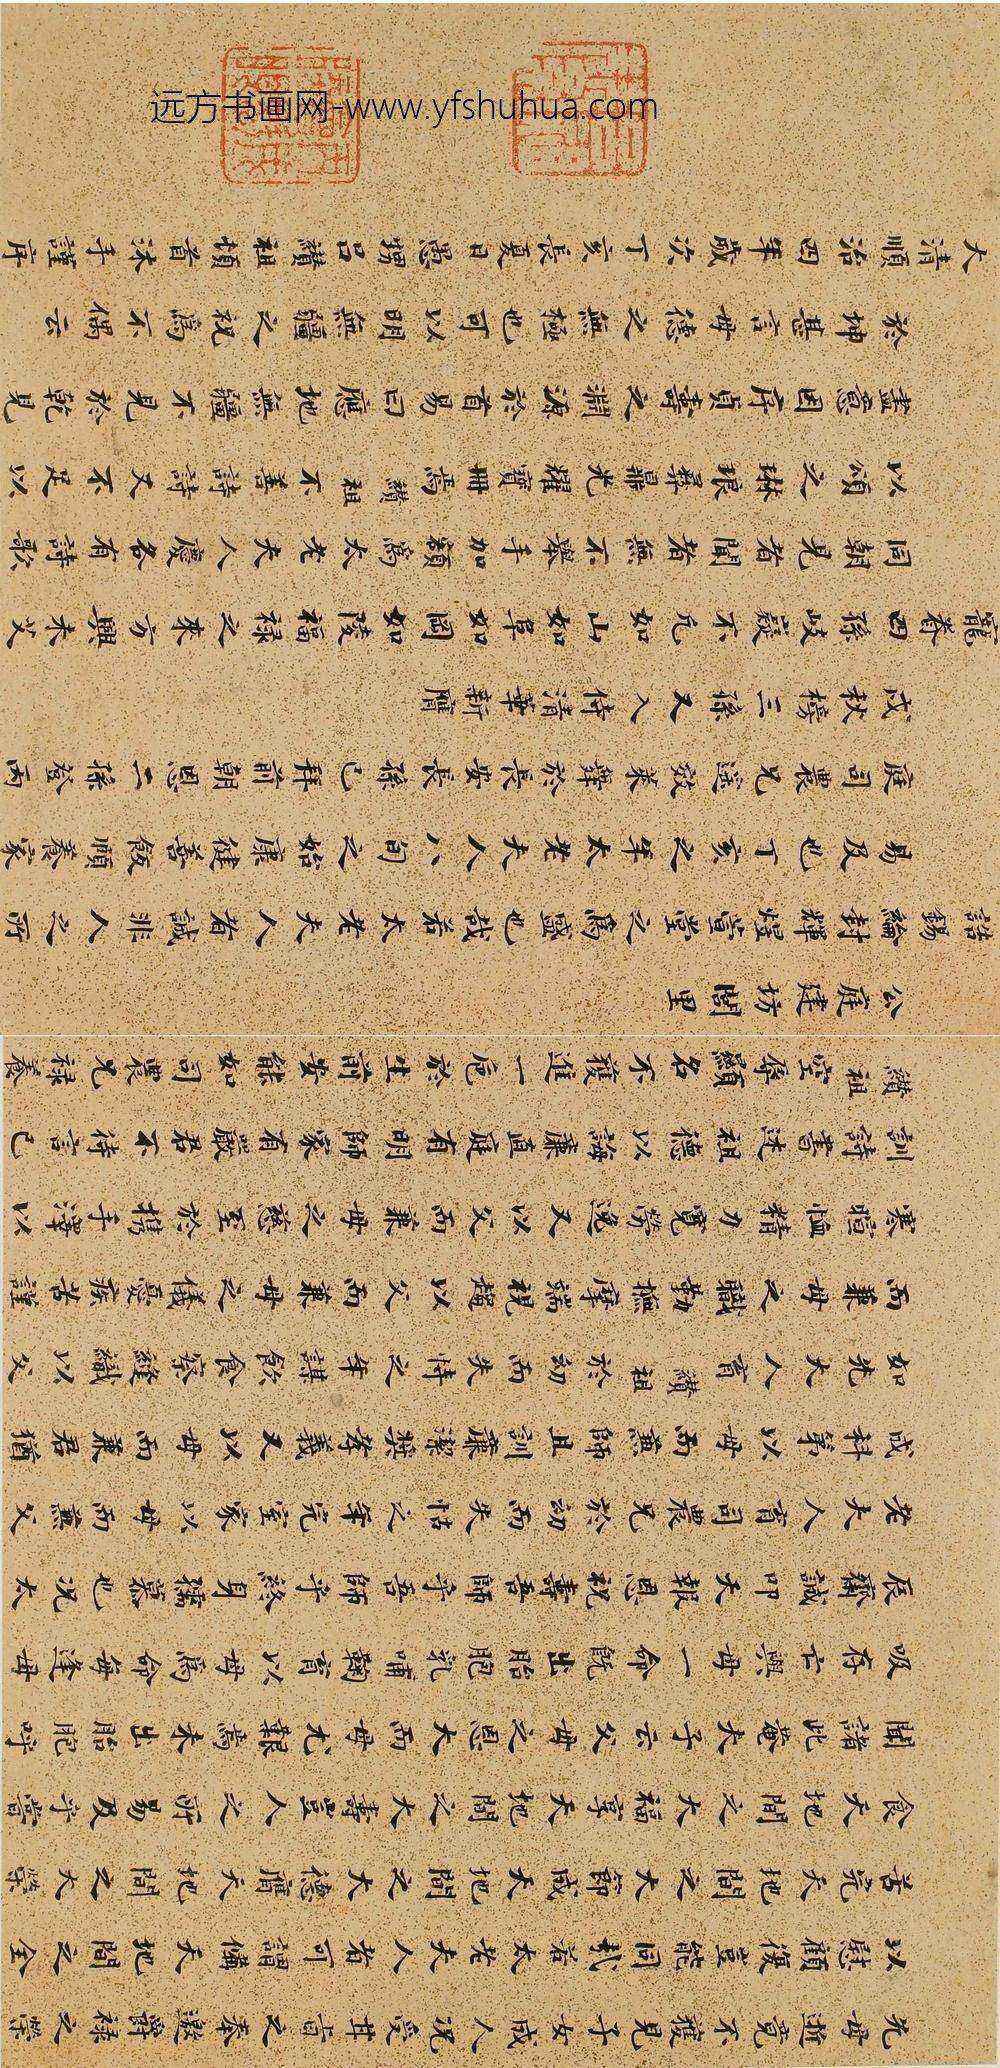 先母逝竟不獲見子女成人況受甘旨之奉邀爵祿之榮
以慰顧復豈能同哉若太老夫人者可謂備天地間之全
苦完天地間之大節成天地間之大德膺天地間之大榮
食天地間之大福享天地間之大壽豈人之所易及乎嘗
聞諸此菴夫子云父母之恩大而母尤艱焉未出胎胞呼
吸存亡與母一命既出胎胞乳哺鞠育以母為命每逢母
辰齋誠叩天報恩祝壽吾師乎吾師乎終身孺慕也況太
老夫人育司農兄於幼而失怙之年完室家以母而兼父
成科第以母而兼師且訓廉潔獎孝義又以母而兼君猶
如先大人育纘祖於幼而失恃之年謀飲食察縫織以父
而兼母之職勤撫摩端視趨以父而兼母之儀憂疾苦謹
寒暄恤精力寬勞逸又以父而兼母之慈至於攜手澤以
訓詩書述祖德以誨廉直庭有明師家有嚴君不待言已
纘祖空辱顯名不獲進一卮於生前安能如司農兄祿養
公庭建坊閭里
誥錫綸封輝煌萱堂之為盛也哉若太老夫人者誠非人之所
易及也丁亥之年太老夫人八旬之始康健善飯頤養家
庭司農兄遙效萊舞於長安長孫已拜前朝恩二孫登丙
戌秋榜三孫又入侍清華新膺
寵眷四孫岐嶷不凡如山如阜如岡如陵福祿之來方興未艾
同朝見者聞者無不舉手加額為太老夫人慶各有詩歌
以頌之琳琅彝鼎光耀寶冊焉纘祖不善詩又不足以
盡意因序貞壽之淵源於首易曰應地無疆不見於乾見
於坤甚言母德之無極也可以明無疆之祝為不偶云
大清順治四年歲次丁亥長夏日愚甥呂纘祖頓首沐手謹序
远方书画网-www.yfshuhua.com